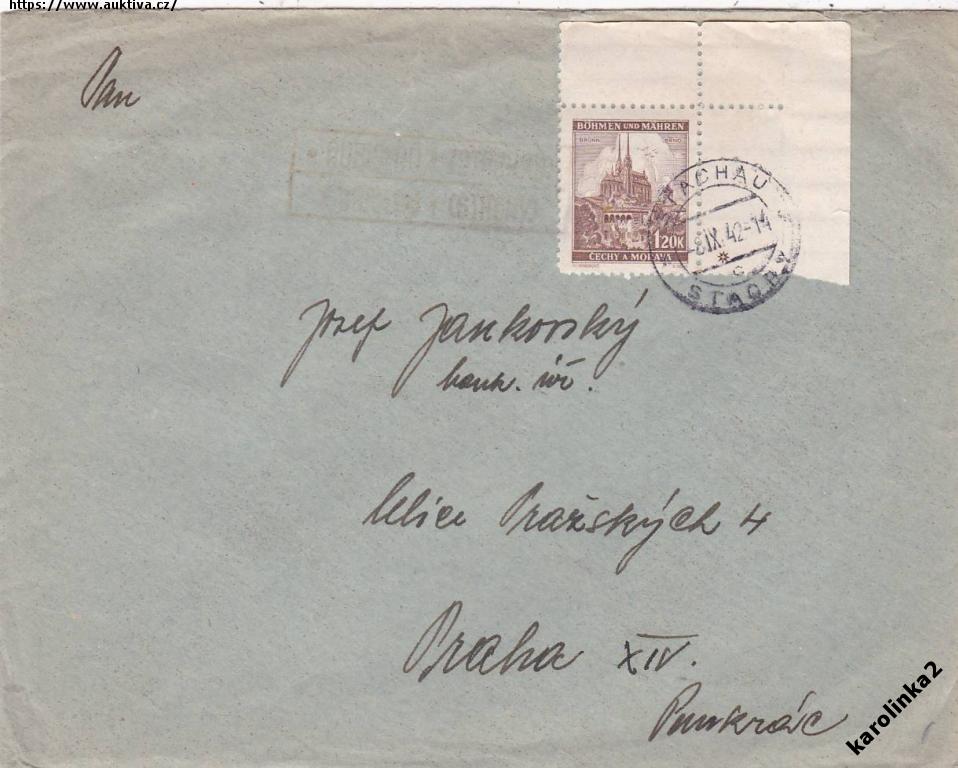 https://www.auktiva.cz/
Pan
BÖHMEN UND MÄHREN
BRÜNN BRNO
1.20K
ČECHY A MORAVA
STACHAU
-8.IX.42-14
*
c
STACHY
Josef Jankovský
bank. úř.
Ulice Pražských 4
Praha XIV.
Pankrác
karolinka2